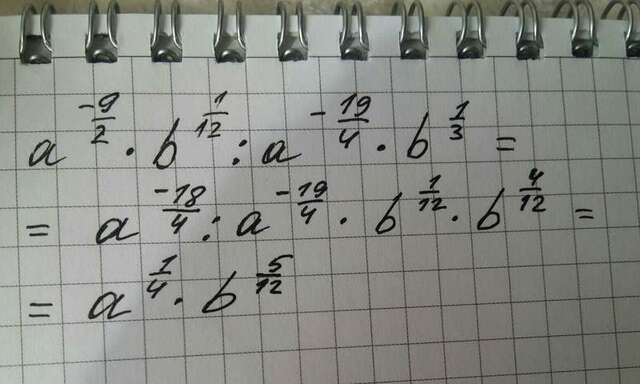 a^{-9/2} · b^{1/12} : a^{-19/4} · b^{1/3} =
= a^{-18/4} : a^{-19/4} · b^{1/12} · b^{4/12} =
= a^{1/4} · b^{5/12}